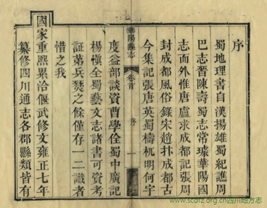 序
蜀地理書自漢揚雄蜀紀譙周
巴志晉陳壽蜀志常璩華陽國
志而外惟唐盧求成都記張周
封成都風俗錄宋趙抃成都古
今集記張唐英蜀檮杌明何宇
度益部談資曹學佺蜀中廣記
楊慎全蜀藝文志諸書可資考
証第兵燹之餘僅存一二識者
惜之我
國家重熙累洽偃武修文雍正七年
纂修四川通志各郡縣類皆有